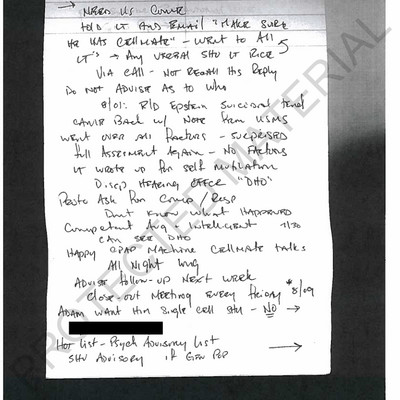 → Need Us Cover
Told LT and Email "Make Sure
He Has Cellmate" - Went to All 5
LT's → Any Verbal SHU LT Rice
Via Call - Not Recall His Reply
Do Not Advise As to Who
8/01: R/D Epstein Suicidal tend
Came Back w/ Note From USMS
Went over All Factors - Surprised
full Assessment Again - No Factors
LT wrote up for self mutilation
Discip Hearing officer "DHO"
Ask For Comp / Resp
Dont Know What Happened
Competent Avg Intelligent 7/30
Can See DHO
Happy CPAP Machine Cellmate talks
All Night long
Advise follow-up Next Week
Close-out Meeting Every Friday *8/09
Adam Want Him Single Cell SHU - No →
Hot List - Psych Advisory List
SHU Advisory if Gen Pop →
PROTECTED MATERIAL